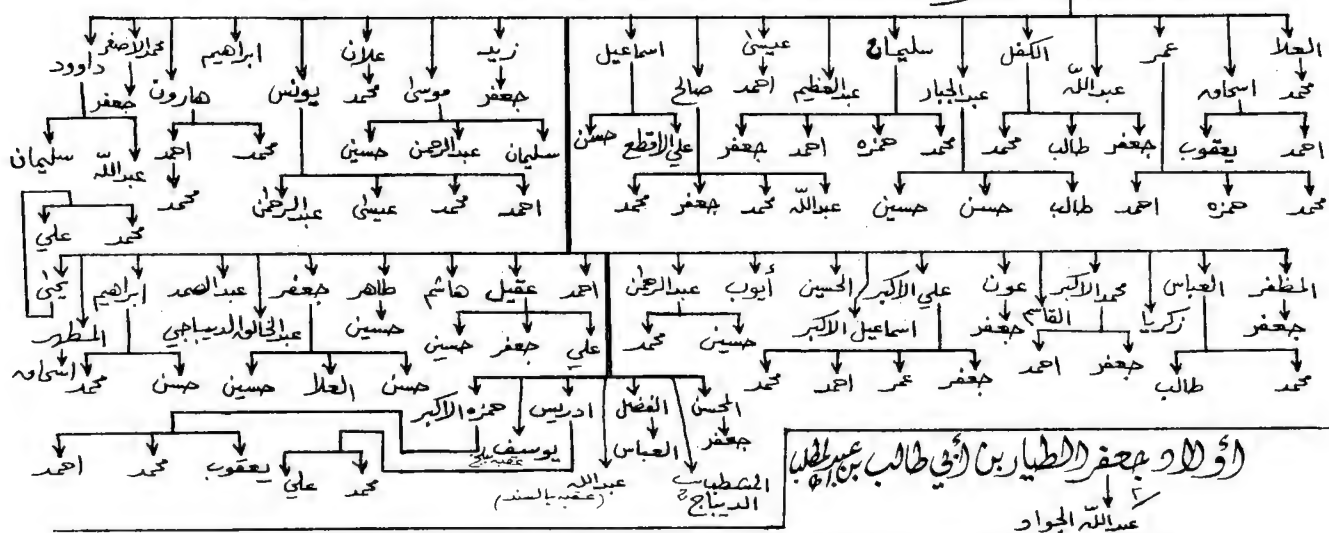 العلا عمر الكفل سليمان عيسى اسماعيل زيد علان ابراهيم محمد الاصغر
محمد اسحاق عبدالله عبد الجبار عبد العظيم احمد صالح جعفر موسى محمد يونس هارون جعفر داوود
احمد يعقوب جعفر طالب محمد محمد حمزه احمد جعفر علي الاقطع حسن سليمان عبد الرحمن حسين محمد احمد عبدالله سليمان
محمد حمزه احمد طالب حسن حسين عبدالله محمد جعفر محمد احمد محمد عيسى عبد الرحمن محمد
محمد علي
المظفر العباس محمد الاكبر عون علي الاكبر الحسين أيوب عبد الرحمن احمد عقيل هاشم طاهر جعفر عبد الصمد ابراهيم يحيى
جعفر زكريا القاسم جعفر اسماعيل الاكبر حسين عبد الخالق الديباجي المطهر
محمد طالب جعفر احمد جعفر عمر احمد محمد حسين محمد علي جعفر حسين حسن العلا حسين حسن محمد اسحاق
المحسن الفضل ادريس حمزه الاكبر
جعفر العباس يوسف
عقبه بلخ
احمد محمد يعقوب علي محمد
عبدالله
(عقبه بالسند)
الديباج
أولاد جعفر الطيار بن أبي طالب بن عبد المطلب
عبدالله الجواد